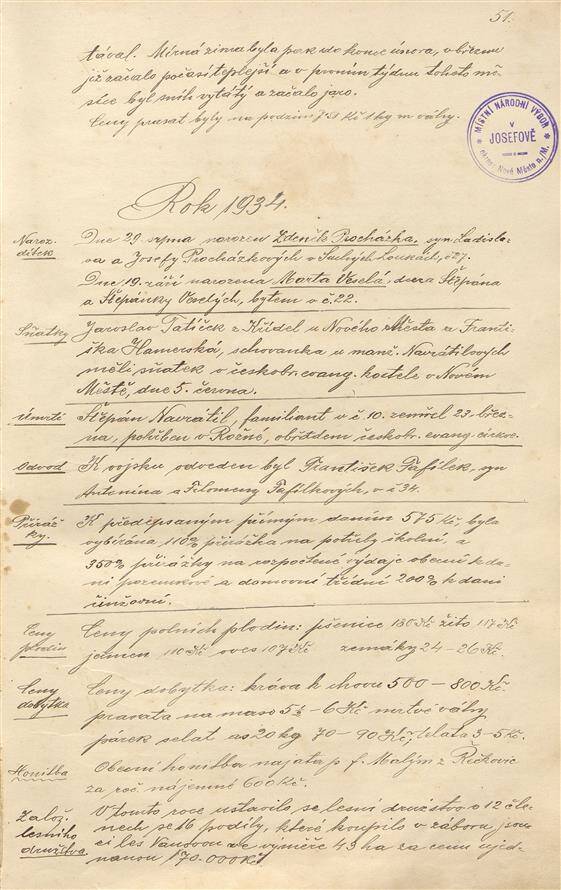 51.
tával. Mírná zima byla pak do konce února, v březnu
již začalo počasí teplejší a v prvním týdnu tohoto mě-
síce byl sníh vytátý a začalo jaro.
Ceny prasat byly na podzim Kč 1 kg m váhy.
MÍSTNÍ NÁRODNÍ VÝBOR
v
JOSEFOVĚ
okres Nové Město n./M.
Rok 1934.
Naroz. dítek
Dne 29. srpna narozen Zdeněk Procházka, syn Ladisla-
va a Josefy Procházkových v Suchých Loukách, č 27.
Dne 19. září narozena Marta Veselá, dcera Štěpána
a Štěpánky Veselých, bytem v č. 22.
Sňatky
Jaroslav Tatíček z Křídel u Nového Města a Franti-
ška Hamerská, schovanka u manž. Navrátilových
měli sňatek v českobr. evang. kostele v Novém
Městě, dne 5. června.
Úmrtí
Štěpán Navrátil, familiant v č 10. zemřel 23. břez-
na, pohřben v Rožné, obřadem českobr. evang. církve.
Odvod
K vojsku odveden byl František Fafílek, syn
Antonína a Filomeny Fafílkových, v č 34.
Přiráž-
ky.
K předepsaným přímým daním 575 Kč, byla
vybírána 110% přirážka na potřeby školní, a
350% přirážky na rozpočtené výdaje obecní k da-
ni pozemkové a domovní třídní 200% k dani
činžovní.
Ceny plodin
Ceny polních plodin: pšenice 130 Kč žito 117 Kč
ječmen 110 Kč oves 107 Kč zemáky 24 – 26 Kč.
Ceny dobytka
Ceny dobytka: kráva k chovu 500 – 800 Kč
prasata na maso – 6 Kč mrtvé váhy
párek selat as 20 kg 70 – 90 Kč, telata 3-5 Kč.
Honitba
Obecní honitba najata p. f. Malým z Řečkovic
za roč. nájemné 600 Kč.
Založ. lesního družstva
V tomto roce ustavilo se lesní družstvo o 12 čle-
nech se 16 podíly, které koupilo v záboru
les Vánovou ve výměře 43 ha za cenu ujed-
nanou 170.000 Kč